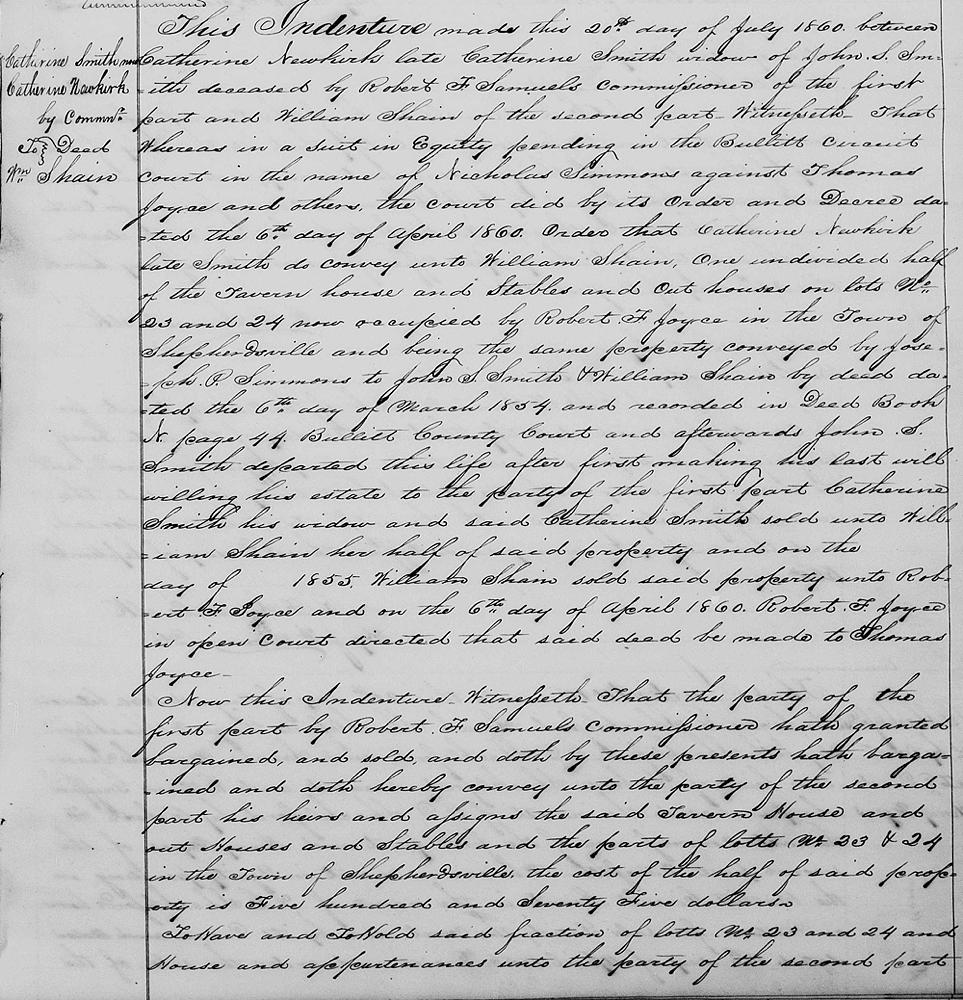 Catherine Smith now
Catherine Newkirk
by Commr.
To } Deed
Wm. Shain
This Indenture made this 20th day of July 1860. between
Catherine Newkirk late Catherine Smith widow of John. S. Sm=
=ith deceased by Robert F Samuels Commissioner of the first
part and William Shain of the second part - Witnesseth - That
Whereas in a suit in Equity pending in the Bullitt Circuit
Court in the name of Nicholas Simmons against Thomas
Joyce and others, the Court did by its Order and Decree da=
=ted the 6th day of April 1860. Order that Catherine Newkirk
late Smith do convey unto William Shain, One undivided half
of the Tavern house and Stables and Out houses on lots No.
23 and 24 now occupied by Robert. F. Joyce in the Town of
Shepherdsville and being the same property conveyed by Jose=
=ph. P. Simmons to John S. Smith & William Shain by deed da=
=ted the 6th day of March 1854. and recorded in Deed Book
N. page 44. Bullitt County Court and afterwards John. S.
Smith departed this life after first making his last will
willing his estate to the party of the first part Catherine
Smith his widow and said Catherine Smith sold unto Will=
=iam Shain her half of said property and on the
day of 1855. William Shain sold said property unto Rob=
=ert. F. Joyce and on the 6th day of April 1860. Robert. F. Joyce
in open Court directed that said deed be made to Thomas
Joyce -
Now this Indenture - Witnesseth - That the party of the
first part by Robert. F. Samuels Commissioner hath granted
bargained, and sold, and doth by these presents hath barga=
=ined and doth hereby convey unto the party of the second
part his heirs and assigns the said Tavern House and
out Houses and Stables and the parts of lotts No. 23 & 24
in the Town of Shepherdsville, the cost of the half of said prop=
=erty is Five hundred and Seventy Five dollars
To Have and To Hold said fraction of lotts No. 23 and 24 and
House and appurtenances unto the party of the second part